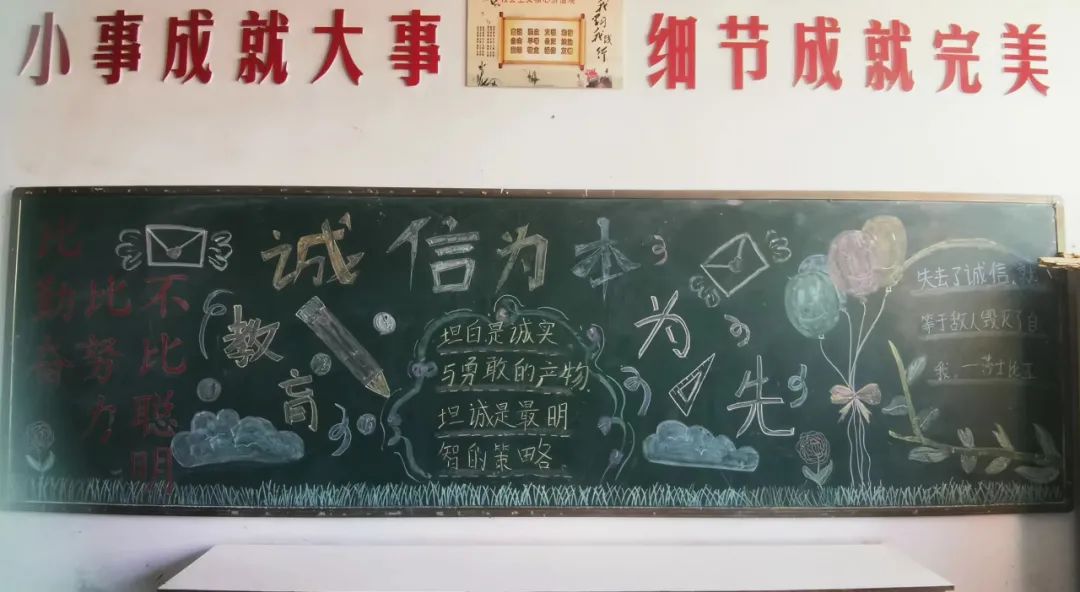 小事成就大事
细节成就完美
诚信为本
教育
为先
不比聪明
比努力
比勤奋
坦白是诚实
与勇敢的产物
坦诚是最明
智的策略
失去了诚信
等于敌人毁灭了自
我,一莎士比亚